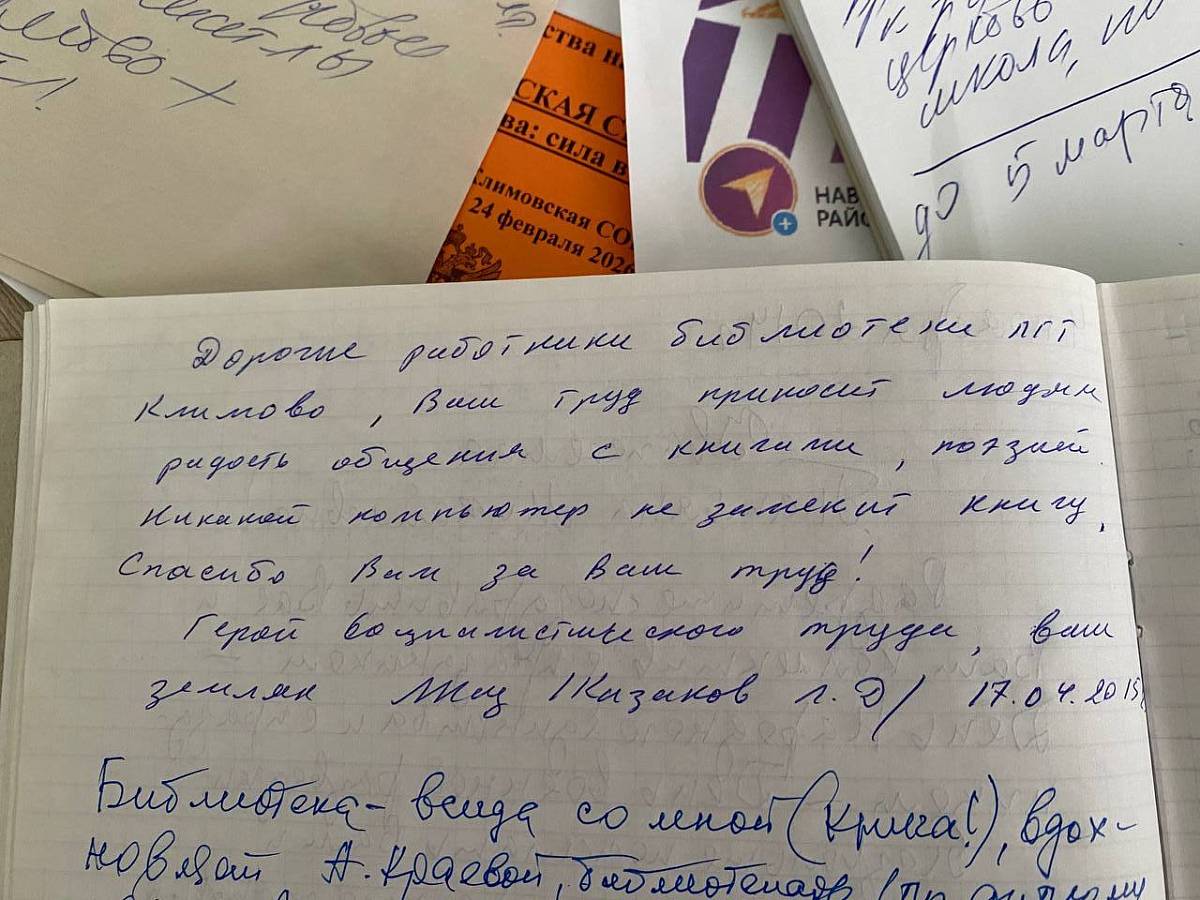 ства на
СКАЯ С
ва: сила в
Климовская СО
24 февраля 2026
НАВ
РАЙО
церково
школа,
до 5 марта
Дорогие работники библиотеки пгт
Климово, Ваш труд приносит людям
радость общения с книгами, поэзией
Никакой компьютер не заменит книгу,
Спасибо Вам за Ваш труд!
Герой Социалистического труда, ваш
земляк /Казаков Г.Д/ 17.04.2015
Библиотека - всегда со мной (Книга!), вдох-
новляет А. Краевой,